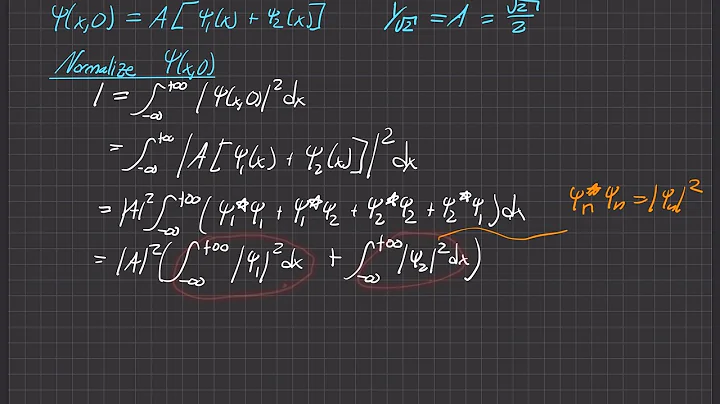 Ψ(x,0) = A[ψ₁(x) + ψ₂(x)]    1/√2 = A = √2/2
Normalize Ψ(x,0)
1 = ∫_{-∞}^{+∞} |Ψ(x,0)|² dx
= ∫_{-∞}^{+∞} |A[ψ₁(x) + ψ₂(x)]|² dx
= |A|² ∫_{-∞}^{+∞} (ψ₁*ψ₁ + ψ₁*ψ₂ + ψ₂*ψ₂ + ψ₂*ψ₁) dx    ψₙ*ψₙ = |ψₙ|²
= |A|² (∫_{-∞}^{+∞} |ψ₁|² dx + ∫_{-∞}^{+∞} |ψ₂|² dx)